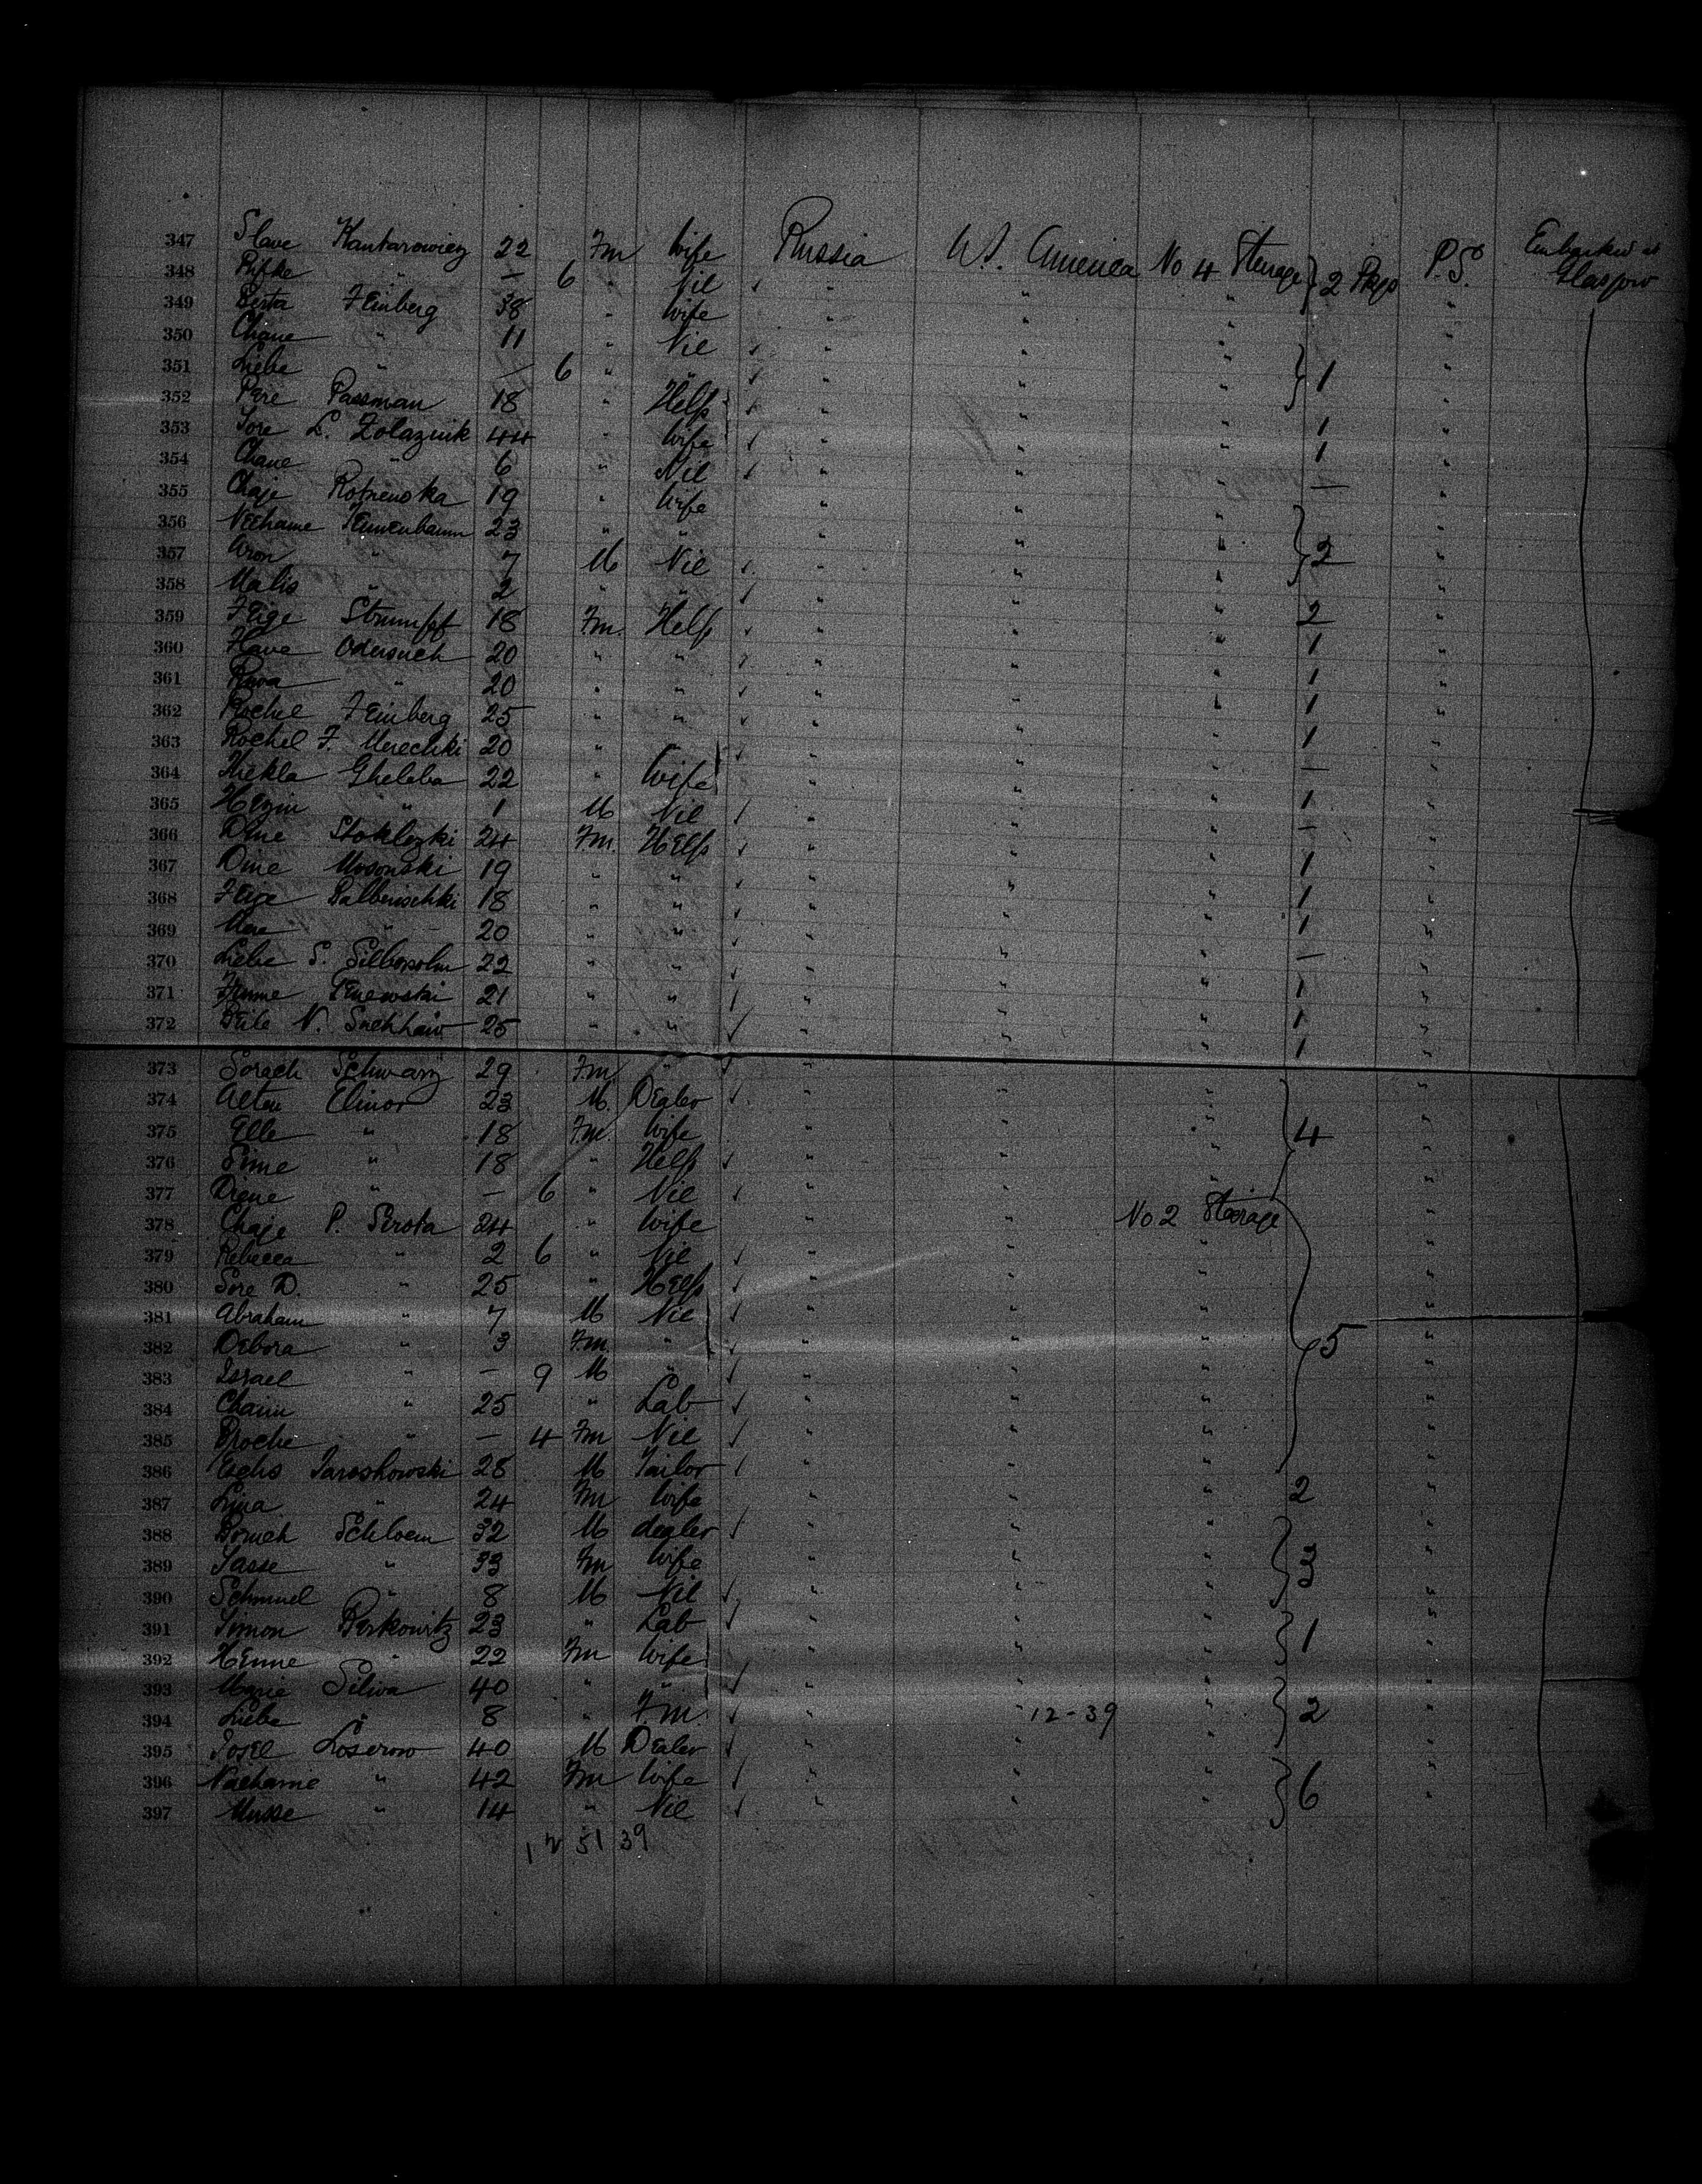 347 Slave Kantarowicz 22 Fm Wife Russia U.S. America No 4 Steerage 2 Pkgs P.S. Embarked at Glasgow
348 Rifke " — 6 " Nil " " " "
349 Berta Feinberg 38 " Wife " " " "
350 Chane " 11 " Nil " " " "
351 Liebe " — 6 " " " " " 1 "
352 Pere Passman 18 " Help " " " 1 "
353 Sore L. Zolaznik 44 " Wife " " " 1 "
354 Chane " 6 " Nil " " " — "
355 Chaje 19 " Wife " " " "
356 Nechame 23 " " " " " 2 "
357 Aron " 7 M Nil " " " "
358 Malis " 2 " " " " " "
359 Feige Strumpf 18 Fm. Help " " " 2 "
360 Odersuch 20 " " " " " 1 "
361 " 20 " " " " " 1 "
362 Rochel Feinberg 25 " " " " " 1 "
363 Rochel F. Merechki 20 " " " " " 1 "
364 Thekla Gheleba 22 " Wife " " " — "
365 " 1 M Nil " " " 1 "
366 Dine 24 Fm. Help " " " — "
367 Dine Mosonski 19 " " " " " 1 "
368 Feige Balberischki 18 " " " " " 1 "
369 Mere " 20 " " " " " 1 "
370 Liebe S. 22 " " " " " — "
371 21 " " " " " 1 "
372 Beile N. 25 " " " " " 1 "
373 Sorach Schwarz 29 Fm " " " " 1 "
374 Elinor 23 M. Dealer " " " "
375 Elle " 18 Fm. Wife " " " 4 "
376 Sime " 18 " Help " " " "
377 " — 6 " Nil " " " "
378 Chaje P. Serota 24 " Wife " " No 2 Steerage "
379 Rebecca " 2 6 " Nil " " " "
380 Sore D. " 25 " Help " " " "
381 Abraham " 7 M Nil " " " "
382 Debora " 3 Fm. " " " " 5 "
383 Israel " — 9 M " " " " "
384 Chaim " 25 " Lab " " " "
385 Broche " — 4 Fm Nil " " " "
386 Jaroshowski 28 M Tailor " " " 2 "
387 Lina " 24 Fm Wife " " " "
388 Boruch Schloem 32 M dealer " " " "
389 Sasse " 33 Fm Wife " " " 3 "
390 Schmuel " 8 M Nil " " " "
391 Simon Berkowitz 23 " Lab " " " 1 "
392 Henne " 22 Fm Wife " " " "
393 Marie Siliva 40 " " " " " "
394 Liebe " 8 " F.m. " " 12-39 " 2 "
395 Josel Loserow 40 M Dealer " " " "
396 Nachame " 42 Fm Wife " " " 6 "
397 Musse " 14 " Nil " " " "
12 51 39